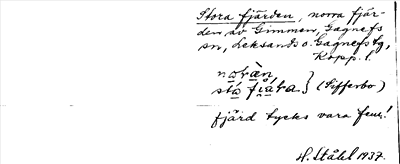 Stora fjärden, norra fjär-
den av Gimmen, Gagnefs
sn, Leksands o. Gagnefs tg,
Kopp. l.
noràn,
stá fiára } (Sifferbo)
fjärd tycks vara fem.!
H. Ståhl 1937.